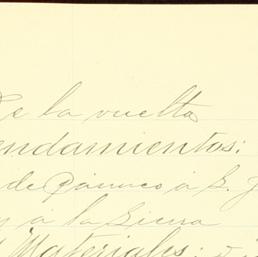 De la vuelta
endamientos:
de Pánuco á S. J
y a la Sierra
Materiales: